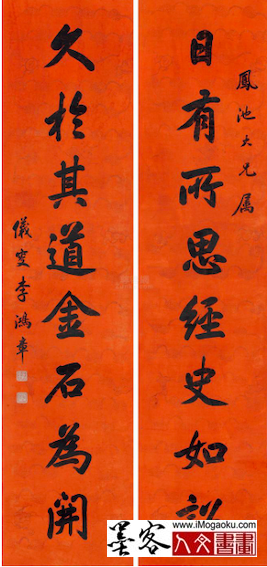 鳳池大兄属
日有所思經史如
久於其道金石為開
儀叟李鴻章
www.iMogaoku.com
墨客
人文書畫